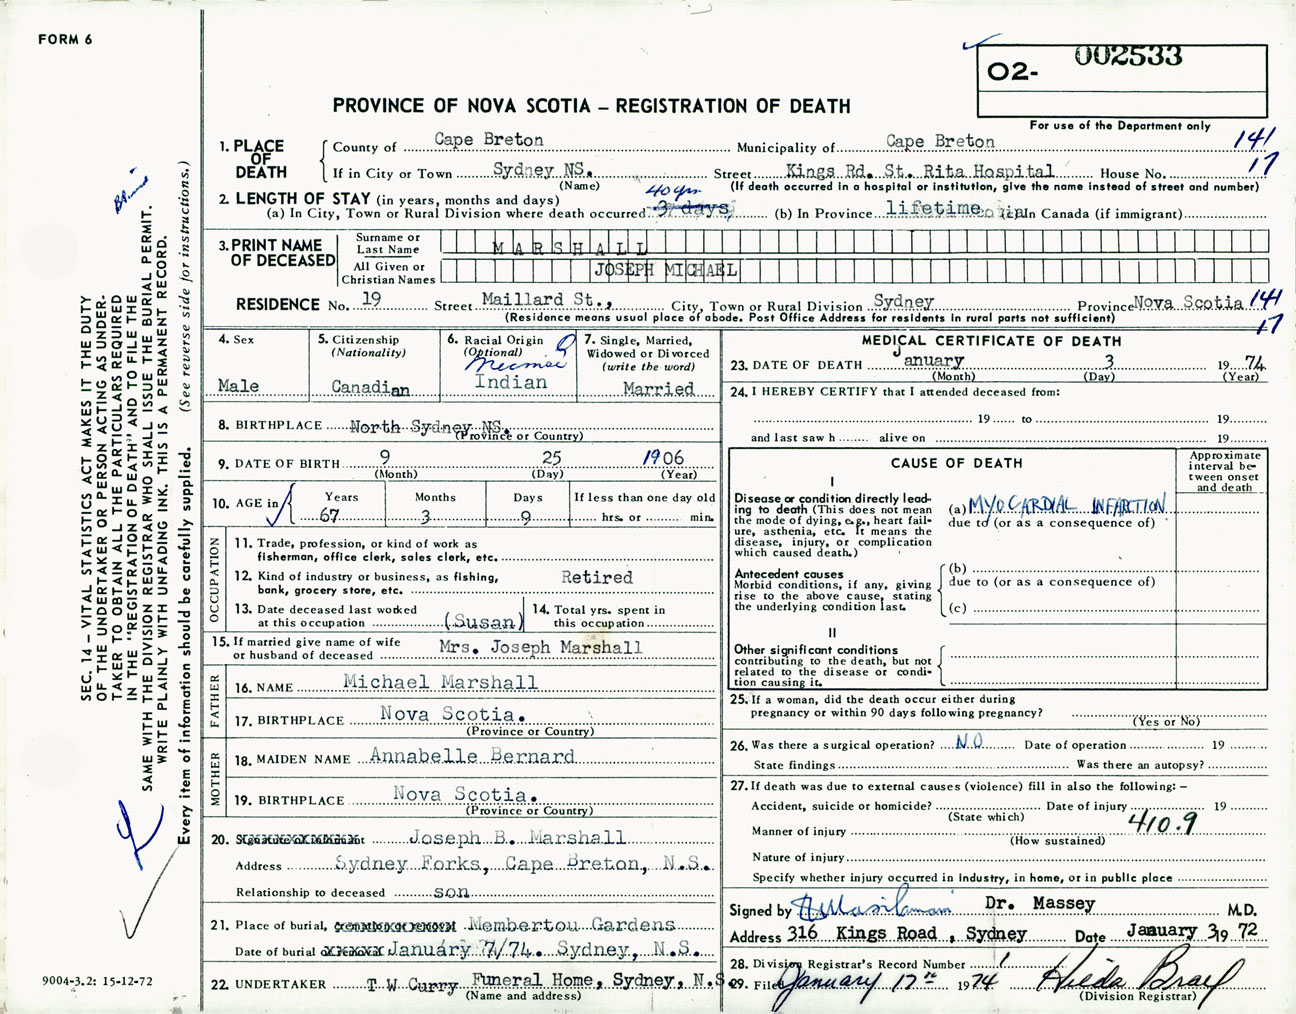 FORM 6
002533
O2-
For use of the Department only
PROVINCE OF NOVA SCOTIA – REGISTRATION OF DEATH
1. PLACE OF DEATH
County of Cape Breton Municipality of Cape Breton 141
If in City or Town Sydney NS. Street Kings Rd. St. Rita Hospital House No. 17
(Name) (If death occurred in a hospital or institution, give the name instead of street and number)
2. LENGTH OF STAY (in years, months and days) 40 yrs
(a) In City, Town or Rural Division where death occurred 3 days (b) In Province lifetime (c) In Canada (if immigrant)
3. PRINT NAME OF DECEASED
Surname or Last Name MARSHALL
All Given or Christian Names JOSEPH MICHAEL
RESIDENCE No. 19 Street Maillard St., City, Town or Rural Division Sydney Province Nova Scotia 141
(Residence means usual place of abode. Post Office Address for residents in rural parts not sufficient) 17
4. Sex
Male
5. Citizenship
(Nationality)
Canadian
6. Racial Origin
(Optional)
Micmac
Indian
7. Single, Married,
Widowed or Divorced
(write the word)
Married
8. BIRTHPLACE North Sydney NS.
(Province or Country)
9. DATE OF BIRTH 9 25 1906
(Month) (Day) (Year)
10. AGE in
Years Months Days If less than one day old
67 3 9 hrs. or min.
OCCUPATION
11. Trade, profession, or kind of work as
fisherman, office clerk, sales clerk, etc.
12. Kind of industry or business, as fishing, Retired
bank, grocery store, etc.
13. Date deceased last worked
at this occupation (Susan)
14. Total yrs. spent in
this occupation
15. If married give name of wife
or husband of deceased Mrs. Joseph Marshall
FATHER
16. NAME Michael Marshall
17. BIRTHPLACE Nova Scotia.
(Province or Country)
MOTHER
18. MAIDEN NAME Annabelle Bernard
19. BIRTHPLACE Nova Scotia.
(Province or Country)
20. Signature of informant Joseph B. Marshall
Address Sydney Forks, Cape Breton, N.S.
Relationship to deceased son
21. Place of burial, cremation or removal Membertou Gardens
Date of burial or removal January 7/74. Sydney, N.S.
22. UNDERTAKER T W Curry Funeral Home, Sydney, N.S.
(Name and address)
MEDICAL CERTIFICATE OF DEATH
23. DATE OF DEATH January 3 1974
(Month) (Day) (Year)
24. I HEREBY CERTIFY that I attended deceased from:
19 to 19
and last saw h alive on 19
CAUSE OF DEATH
Approximate interval between onset and death
I
Disease or condition directly lead-
ing to death (This does not mean
the mode of dying, e.g., heart fail-
ure, asthenia, etc. It means the
disease, injury, or complication
which caused death.)
(a) MYOCARDIAL INFARCTION
due to (or as a consequence of)
Antecedent causes
Morbid conditions, if any, giving
rise to the above cause, stating
the underlying condition last.
(b)
due to (or as a consequence of)
(c)
II
Other significant conditions
contributing to the death, but not
related to the disease or condi-
tion causing it.
25. If a woman, did the death occur either during
pregnancy or within 90 days following pregnancy?
(Yes or No)
26. Was there a surgical operation? NO Date of operation 19
State findings Was there an autopsy?
27. If death was due to external causes (violence) fill in also the following: –
Accident, suicide or homicide? Date of injury 19
(State which)
Manner of injury 410.9
(How sustained)
Nature of injury
Specify whether injury occurred in industry, in home, or in public place
Signed by Dr. Massey M.D.
Address 316 Kings Road, Sydney Date January 3, 19 72
28. Division Registrar's Record Number 1
29. Filed January 17th 1974 Hilda Brag
(Division Registrar)
SEC. 14 – VITAL STATISTICS ACT MAKES IT THE DUTY
OF THE UNDERTAKER OR PERSON ACTING AS UNDER-
TAKER TO OBTAIN ALL THE PARTICULARS REQUIRED
IN THE "REGISTRATION OF DEATH" AND TO FILE THE
SAME WITH THE DIVISION REGISTRAR WHO SHALL ISSUE THE BURIAL PERMIT.
WRITE PLAINLY WITH UNFADING INK. THIS IS A PERMANENT RECORD.
Every item of information should be carefully supplied. (See reverse side for instructions.)
9004-3.2: 15-12-72